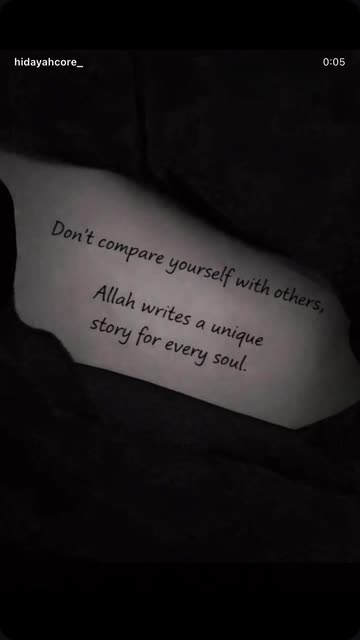 hidayahcore_
0:05
Don't compare yourself with others,
Allah writes a unique
story for every soul.